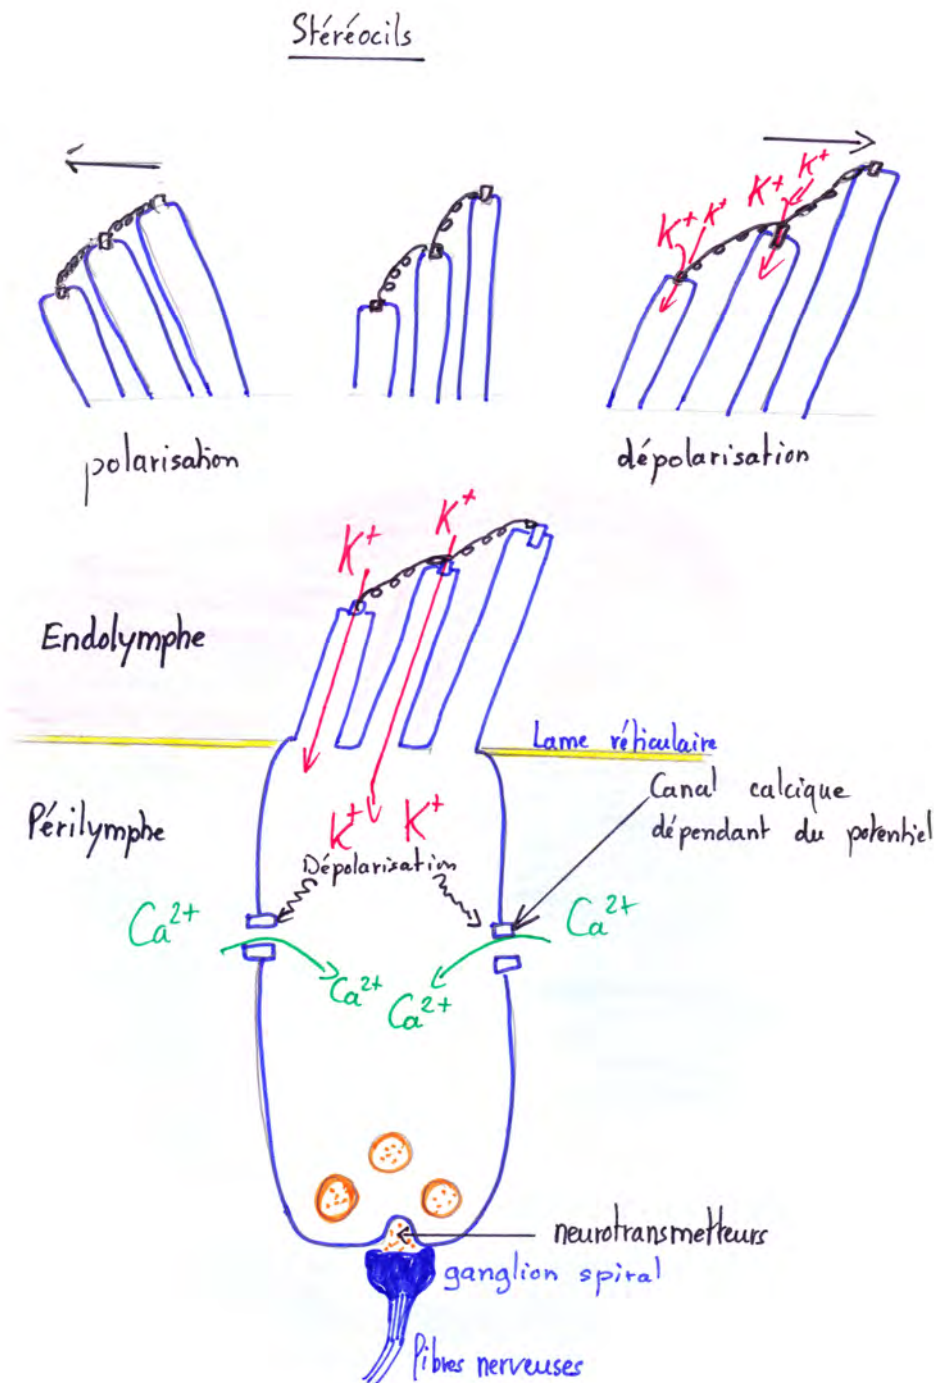 Stéréocils
K⁺
K⁺
K⁺ K⁺
polarisation
dépolarisation
K⁺
K⁺
Endolymphe
Lame réticulaire
Périlymphe
Canal calcique
dépendant du potentiel
K⁺ K⁺
Dépolarisation
Ca²⁺
Ca²⁺
Ca²⁺
Ca²⁺
neurotransmetteurs
ganglion spiral
fibres nerveuses